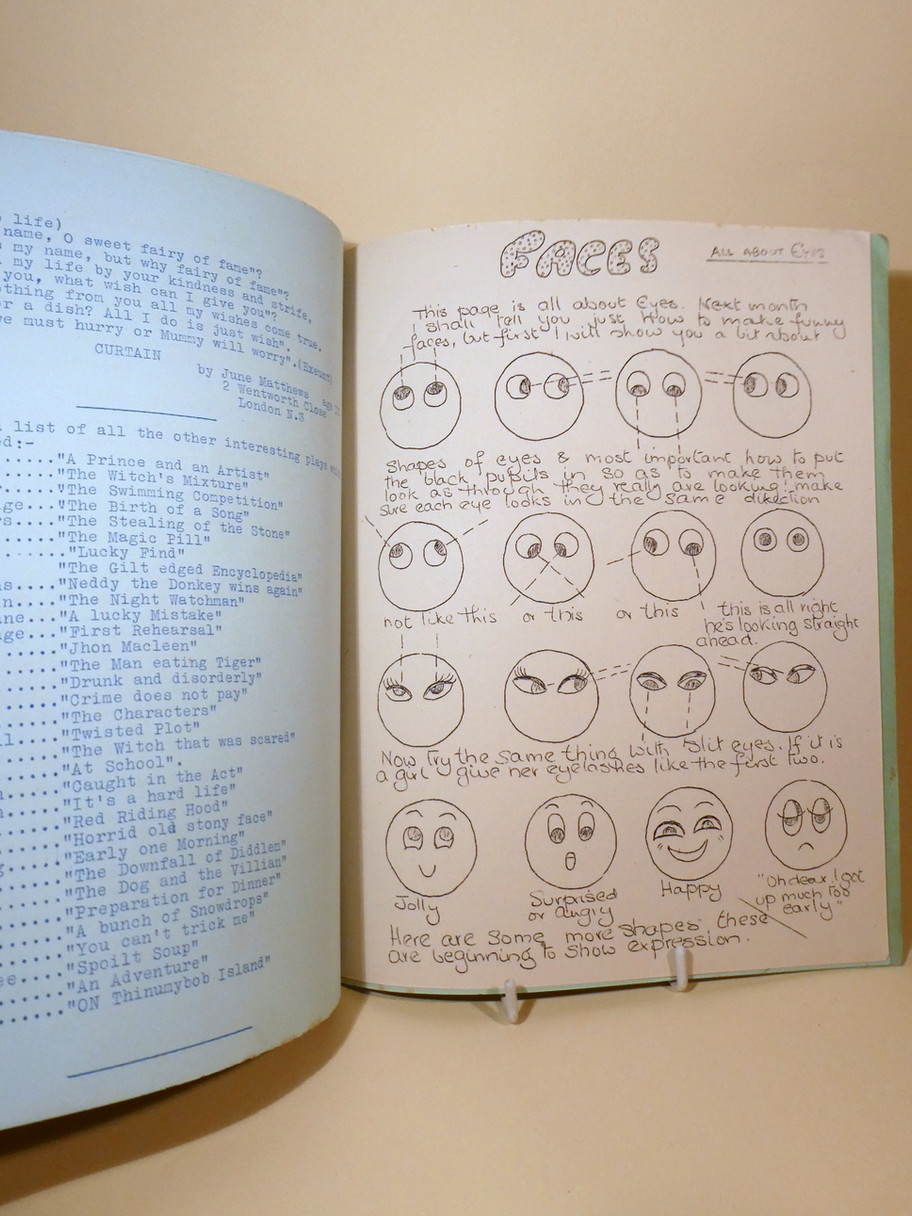 life)
name, O sweet fairy of fame"?
my name, but why fairy of fame"?
my life by your kindness and strife,
you, what wish can I give you"?
othing from you all my wishes come true,
or a dish? All I do is just wish".
we must hurry or Mummy will worry".(Exeunt)
CURTAIN
by June Matthews
2 Wentworth Close
London N.3
list of all the other interesting plays
ed:-
....."A Prince and an Artist"
....."The Witch's Mixture"
....."The Swimming Competition"
ge..."The Birth of a Song"
rs...."The Stealing of the Stone"
....."The Magic Pill"
......"Lucky Find"
"The Gilt edged Encyclopedia"
ns...."Neddy the Donkey wins again"
n....."The Night Watchman"
ne...."A lucky Mistake"
ge..."First Rehearsal"
....."Jhon Macleen"
....."The Man eating Tiger"
....."Drunk and disorderly"
....."Crime does not pay"
....."The Characters"
l...."Twisted Plot"
....."The Witch that was scared"
....."At School".
....."Caught in the Act"
....."It's a hard life"
....."Red Riding Hood"
....."Horrid old stony face"
....."Early one Morning"
....."The Downfall of Diddlem"
....."The Dog and the Villian"
....."Preparation for Dinner"
....."A bunch of Snowdrops"
....."You can't trick me"
....."Spoilt Soup"
ee...."An Adventure"
....."ON Thinumybob Island"
FACES
ALL ABOUT EYES
This page is all about Eyes. Next month
I shall tell you just how to make funny
faces, but first I will show you a bit about
Shapes of eyes & most important how to put
the 'black' pupils in so as to make them
look as through they really are looking! make
sure each eye looks in the same direction
not like this or this or this this is all right
he's looking straight
ahead.
Now try the same thing with 'slit eyes. If it is
a girl give her eyelashes like the first two.
Jolly
Surprised
or angry
Happy
"Oh dear, I got
up much too
early"
Here are some more shapes these
are beginning to show expression.